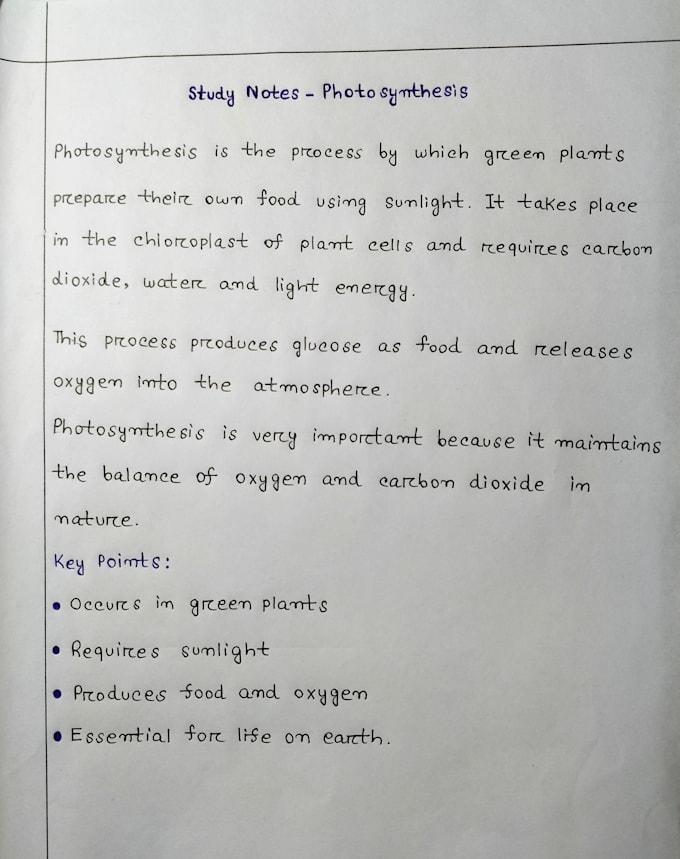 Study Notes - Photosynthesis
Photosynthesis is the process by which green plants
prepare their own food using sunlight. It takes place
in the chloroplast of plant cells and requires carbon
dioxide, water and light energy.
This process produces glucose as food and releases
oxygen into the atmosphere.
Photosynthesis is very important because it maintains
the balance of oxygen and carbon dioxide in
nature.
Key Points:
• Occurs in green plants
• Requires sunlight
• Produces food and oxygen
• Essential for life on earth.